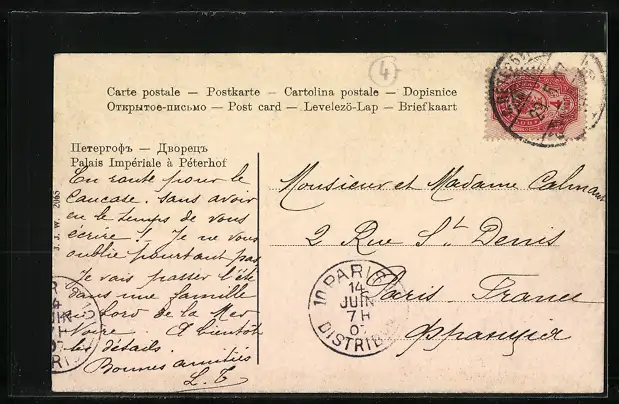 4
Carte postale — Postkarte — Cartolina postale — Dopisnice
Открытое-письмо — Post card — Levelezö-Lap — Briefkaart
Петергофъ — Дворецъ
Palais Impériale à Péterhof
En route pour le
Caucase. Sans avoir
eu le temps de vous
écrire! Je ne vous
oublie pourtant pas
Je vais passer l'été
dans une famille
au bord de la Mer
Noire. A bientôt
les détails.
Bonnes amitiés
L. T
J. J. W. 2065
Monsieur et Madame Calmant
2 Rue St Denis
Paris France
Франція
10 PARIS
14
JUIN
7H
07
DISTRIB